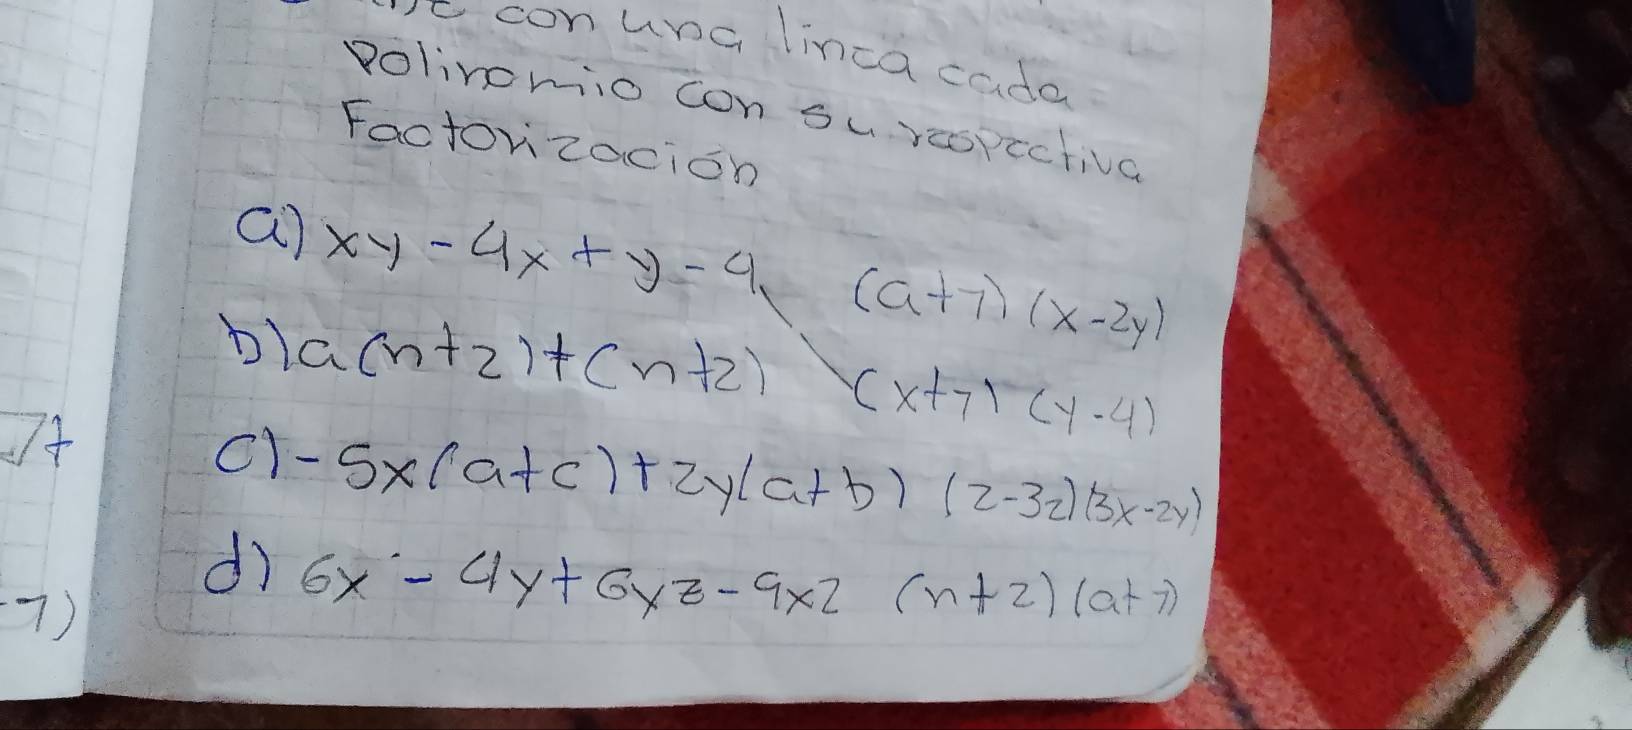 con una línea cada
Polinomio con su respectiva
Factorización
a) xy - 4x + y - 4 (a+7) (x-2y)
b) a(n+2)+(n+2) (x+7) (y-4)
c) -5x(a+c)+2y(a+b) (2-3z)(3x-2y)
d) 6x - 4y + 6yz - 9x2 (n+2) (a+7)
7+
-7)